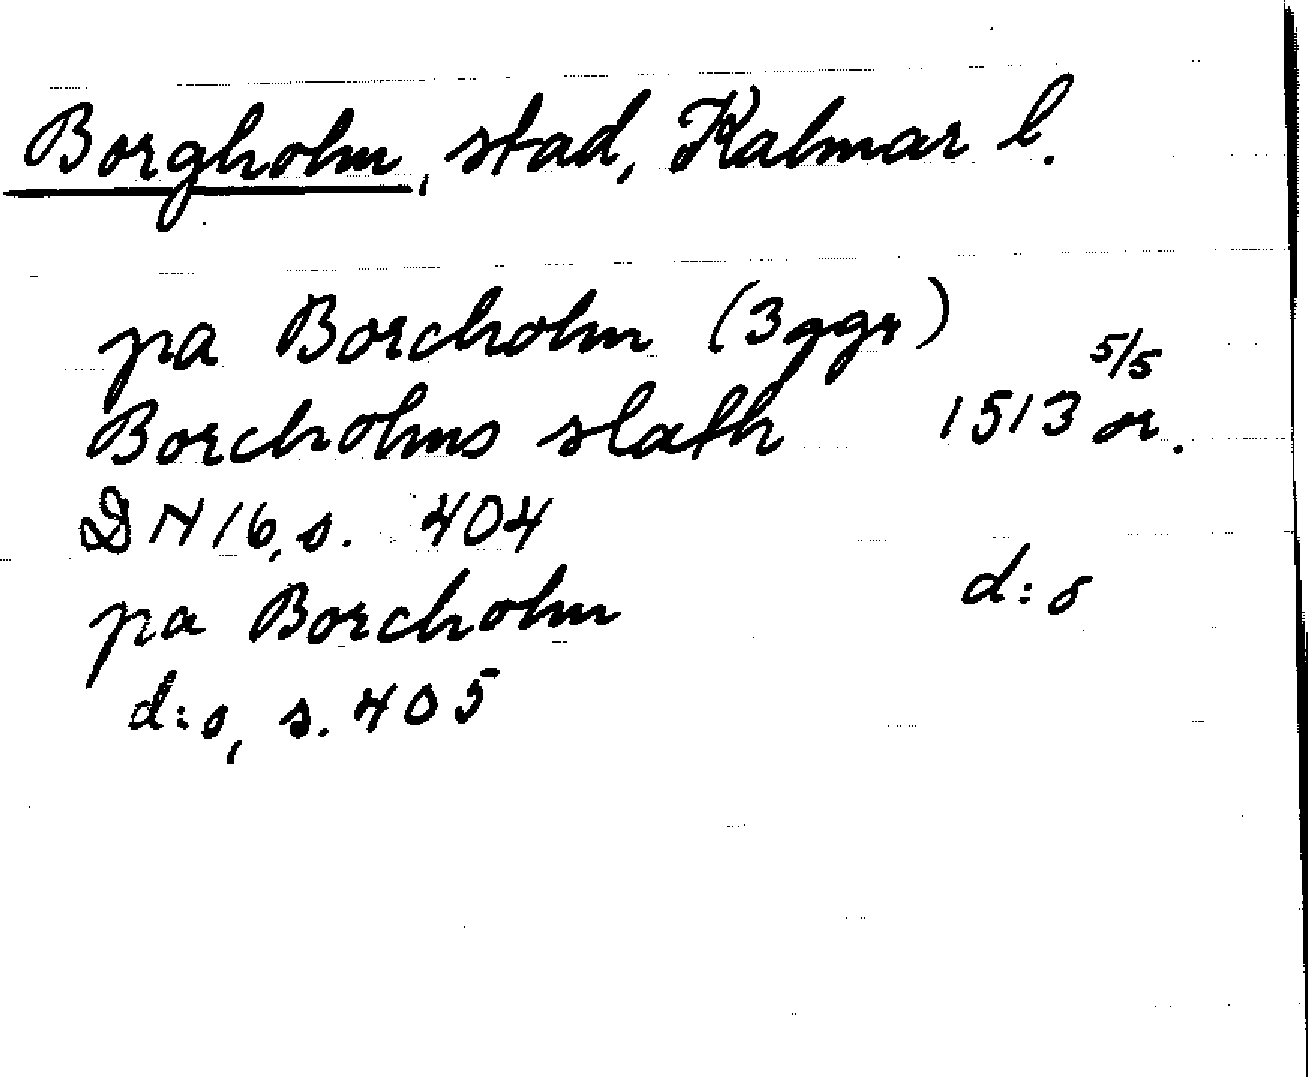 Borgholm, stad, Kalmar l.
pa Borcholm (3 ggr)
Borcholms slath 1513 5/5 or.
DN 16, s. 404
pa Borcholm d:o
d:o, s. 405